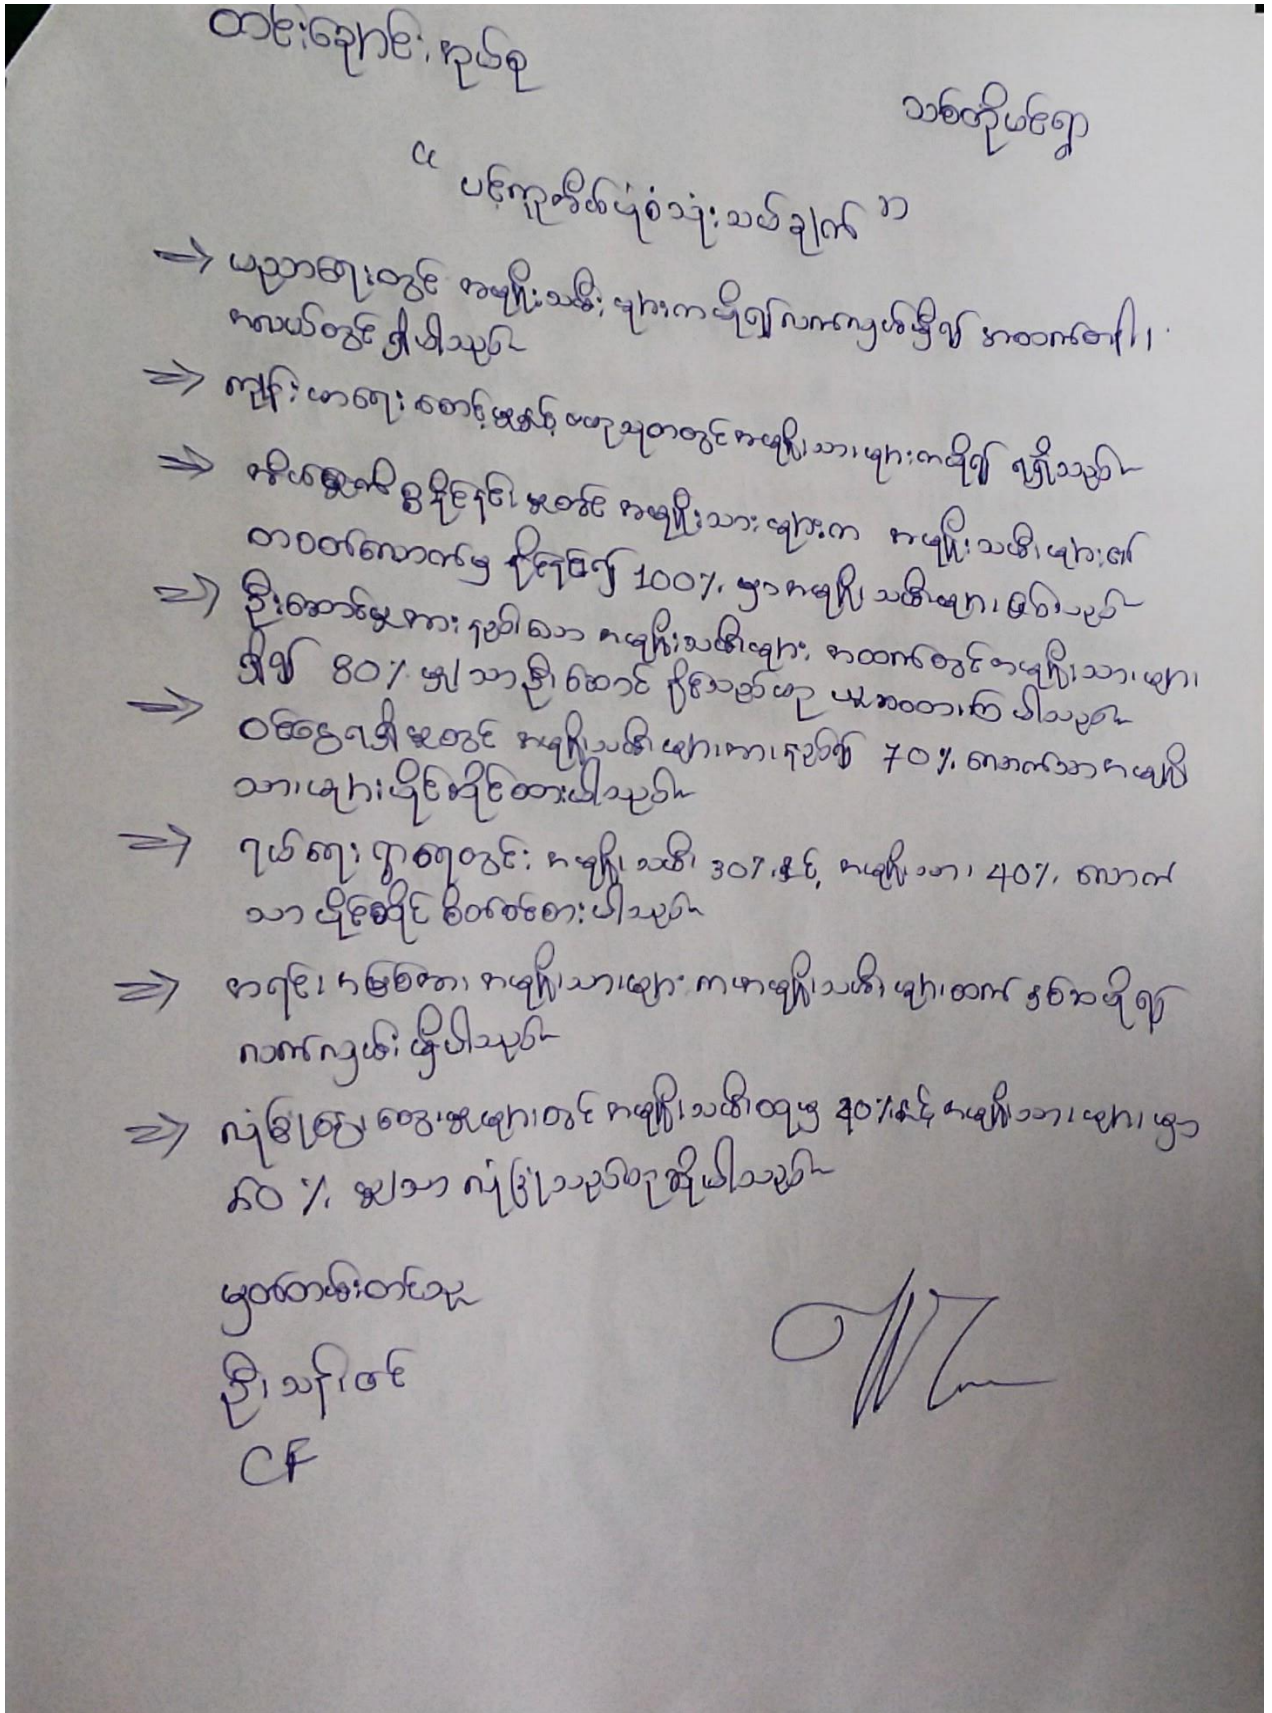 တင်းချောင်းကုယ်စု
သစ်တိုပင်ရွာ
" ပင့်ကူအိမ်ပုံစံသုံးသပ်ချက် "
⇒ ပညာရေးတွင် အမျိုးသမီးများကပို၍လေ့လာ အထက်တန်း
အလယ်တွင်ရှိပါသည်။
⇒ ကျန်းမာရေး စောင့်မှုနှင့် ဗဟုသုတတွင်အမျိုးသားများကပို၍ ရရှိသည်။
⇒ အိမ်မှုကိစ္စနိုင်နင်းမှုတွင် အမျိုးသားများက အမျိုးသမီးများ၏
တဝက်လောက်မှ နိုင်နင်း၍ 100% မှာအမျိုးသမီးများဖြစ်သည်။
⇒ ဦးဆောင်မှုအား နည်းသော အမျိုးသမီးများ အထက်တွင်အမျိုးသားများ
ရှိ၍ 80% မျှသာဦးဆောင် နိုင်သည်ဟု ယူဆထားကြပါသည်။
⇒ ဝင်ငွေရရှိမှုတွင် အမျိုးသမီးများအားနည်း၍ 70% သောအမျိုး
သားများပိုင်ဆိုင်ထားပါသည်။
⇒ ရပ်ရေး ရွာရေးတွင် အမျိုးသမီး 30% နှင့် အမျိုးသား 40% လောက်
သာ ပိုင်ဆိုင် စိတ်ဝင်စားပါသည်။
⇒ အရင်းအမြစ်အား အမျိုးသားများကအမျိုးသမီးများထက် နှစ်ဆပို၍
လက်လှမ်းမှီပါသည်။
⇒ လုံခြုံ ဘေးမှုများတွင် အမျိုးသမီးထုမှ 40% နှင့် အမျိုးသားများမှာ
60% မျှသာ လုံခြုံသည်ဟုဆိုပါသည်။
မှတ်တမ်းတင်သူ
ဦးသန်းဝင်း
CF